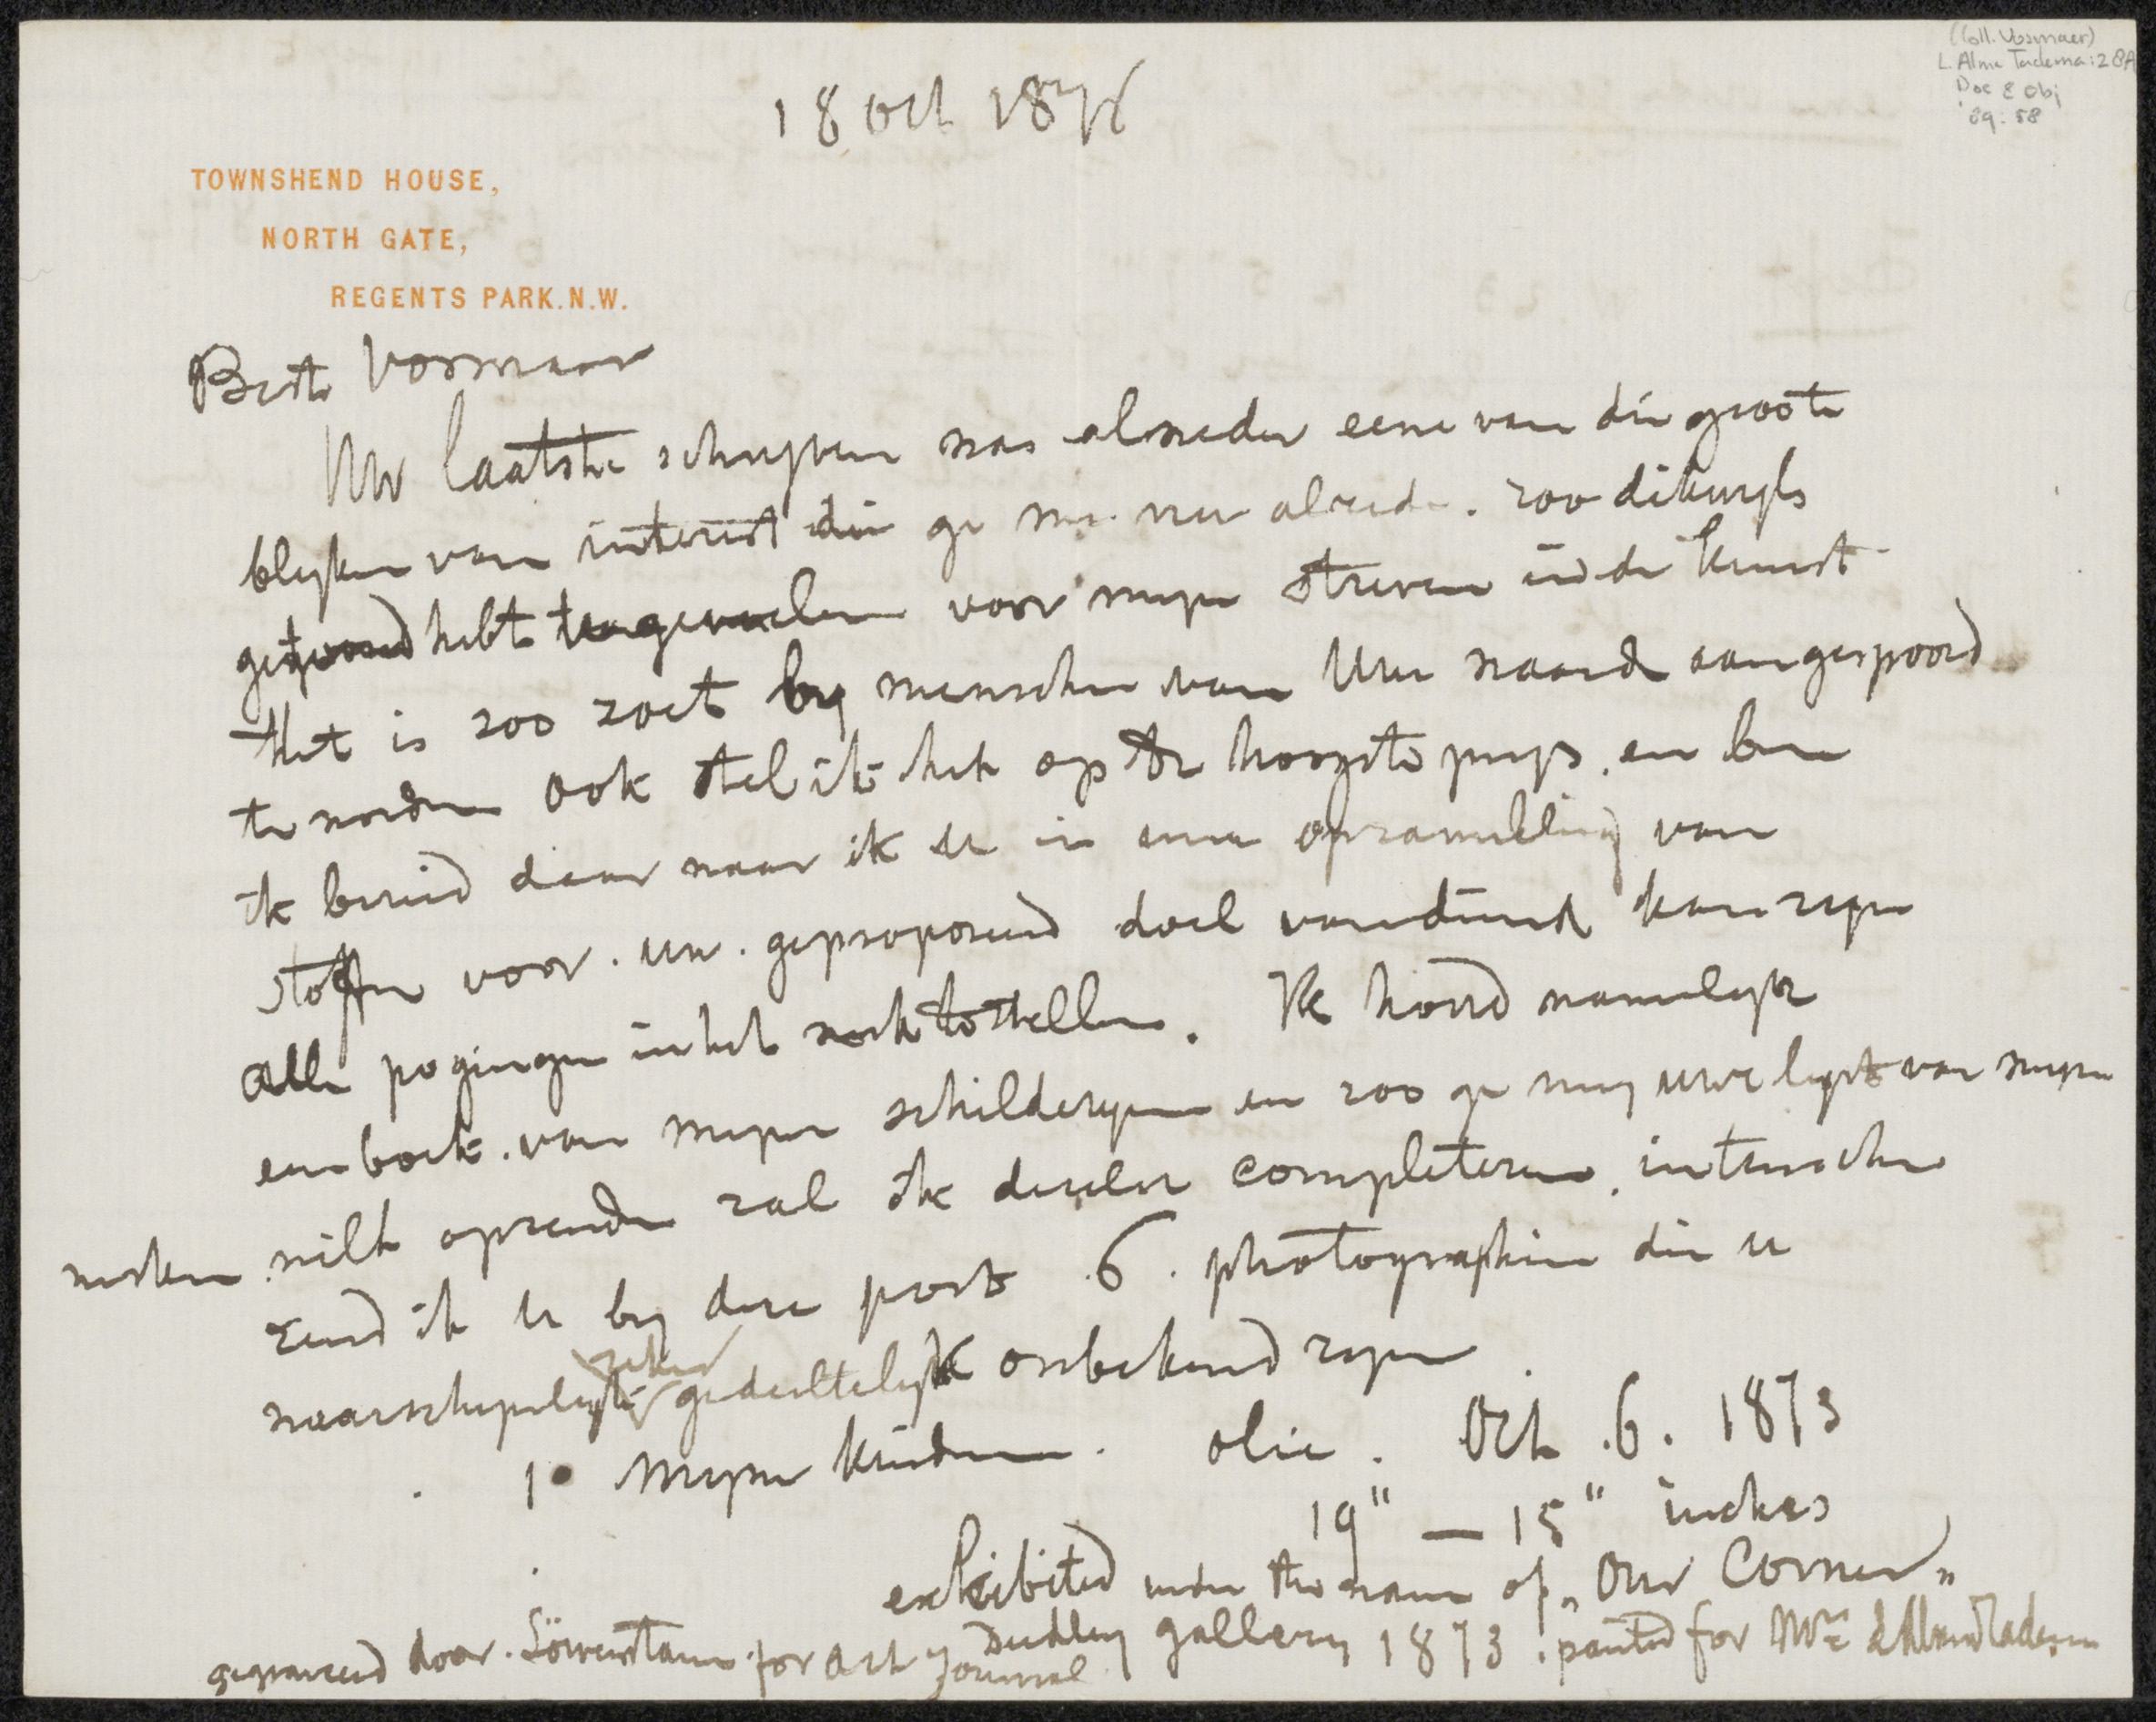 (Coll. Vosmaer)
L. Alma Tadema: 28A
Doc & Obj
'89: 58
18 Oct 1876
TOWNSHEND HOUSE,
NORTH GATE,
REGENTS PARK. N.W.
Beste Vosmaer
Uw laatste schrijven was alweder eene van die groote
blyken van interest die ge me nu alreede. zoo dikwyls
hebt voor myn streven in de kunst
Het is zoo zoet by menschen van Uwe waarde aangespoord
te worden ook stel ik het op de hoogste prys. en ben
ik bereid daar waar ik u in eene opzameling van
stoffen voor. uw. geproposeerd doel van dienst kan zyn
alle pogingen in het werk te stellen. Ik houd namelyk
een boek. van myne schilderyen en zoo ge my uwe lyst van myne
werken wilt opzenden zal ik dezelve completeren. intusschen
zend ik u by deze post .6. photographien die u
waarschynlyk zeker gedeeltelyk onbekend zyn
1° Myne kinderen. olie. Oct .6. 1873
19" — 15" inches
exhibited under the name of „Our Corner"
Dudley gallery 1873. painted for Mrs L Alma Tadema
gegraveerd door. Löwenstam. for Art Journal